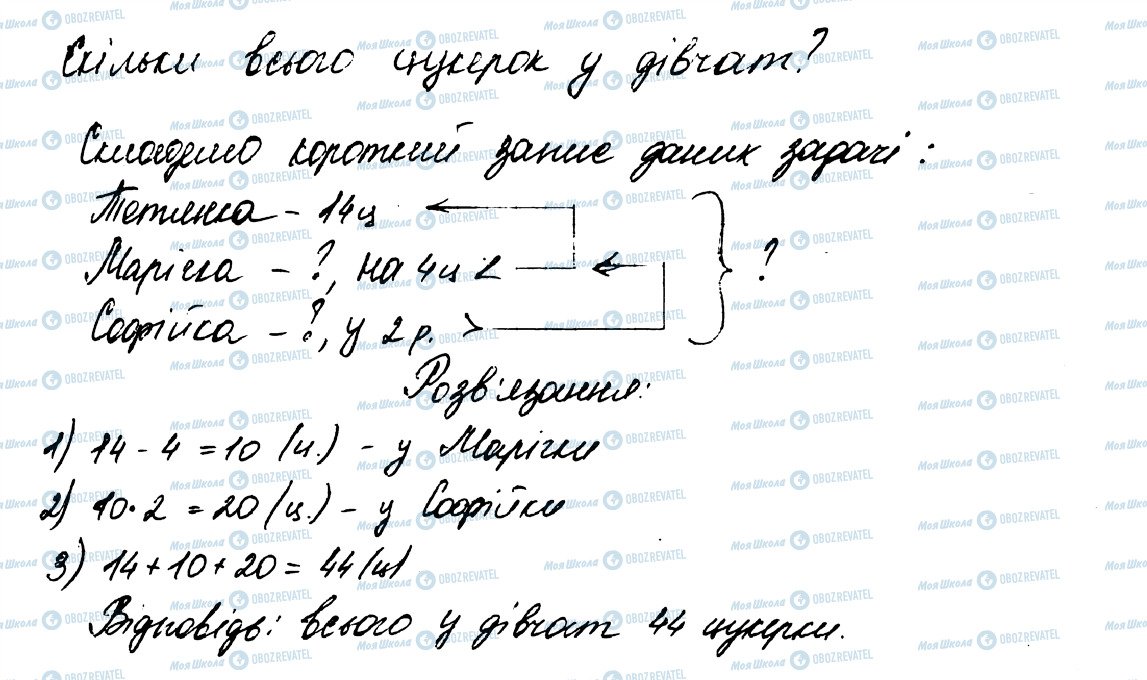 Скільки всього цукерок у дівчат?
Складемо короткий запис даних задачі:
Тетянка - 14ц
Марічка - ?, на 4ц <
Софійка - ?, у 2 р. >
?
Розв'язання:
1) 14 - 4 = 10 (ц.) - у Марічки
2) 10 · 2 = 20 (ц.) - у Софійки
3) 14 + 10 + 20 = 44 (ц)
Відповідь: всього у дівчат 44 цукерки.
Моя Школа OBOZREVATEL